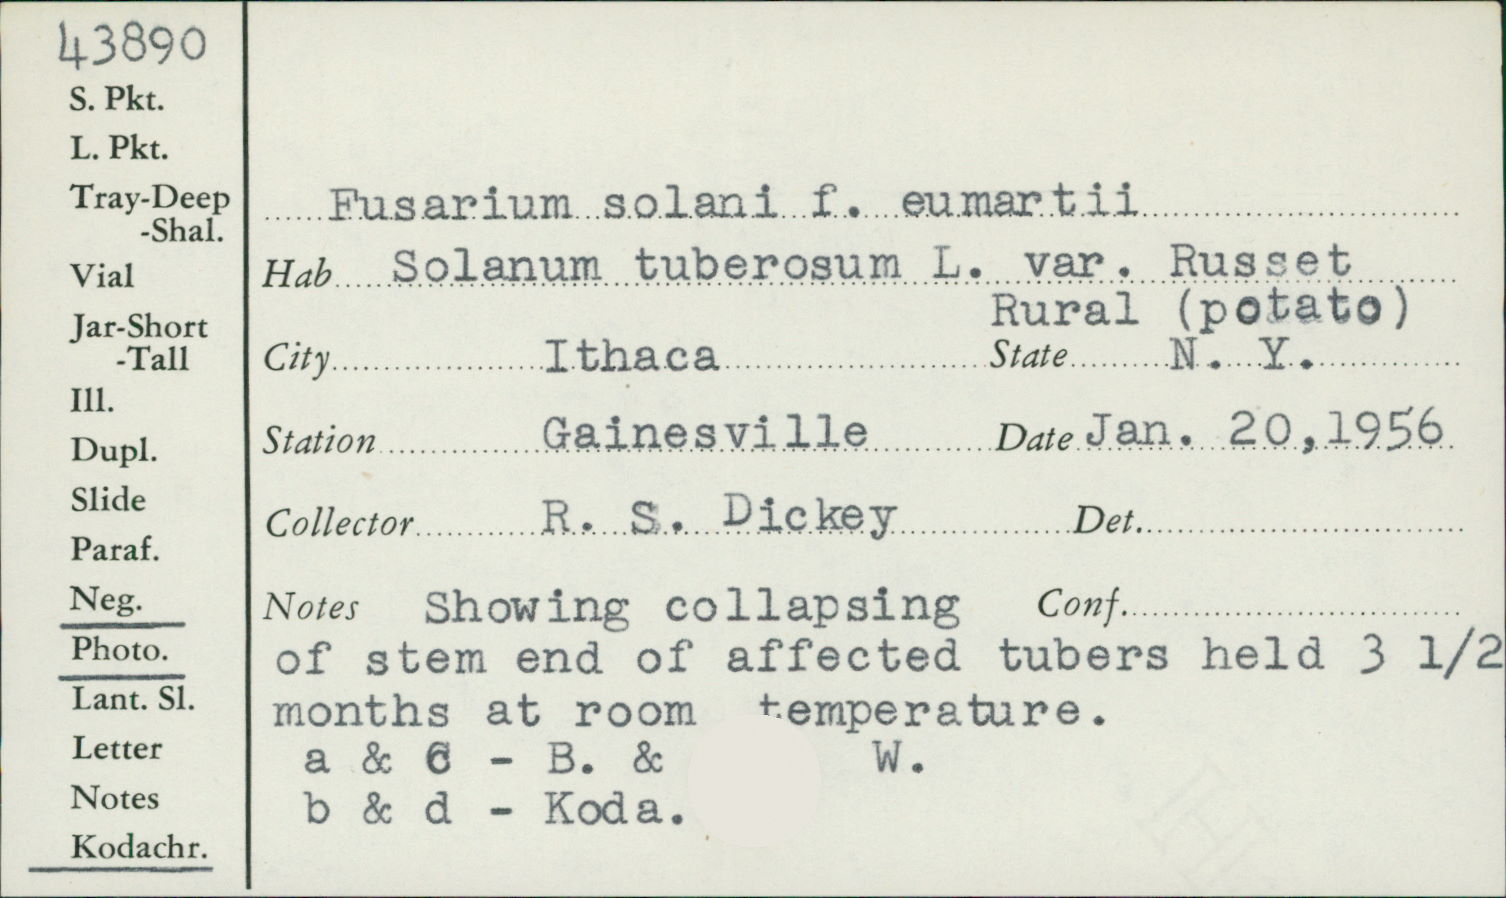 43890
S. Pkt.
L. Pkt.
Tray-Deep
-Shal.
Vial
Jar-Short
-Tall
Ill.
Dupl.
Slide
Paraf.
Neg.
Photo.
Lant. Sl.
Letter
Notes
Kodachr.
Fusarium solani f. eumartii
Hab Solanum tuberosum L. var. Russet
Rural (potato)
City Ithaca State N. Y.
Station Gainesville Date Jan. 20,1956
Collector R. S. Dickey Det.
Notes Showing collapsing Conf.
of stem end of affected tubers held 3 1/2
months at room temperature.
a & c - B. & W.
b & d - Koda.